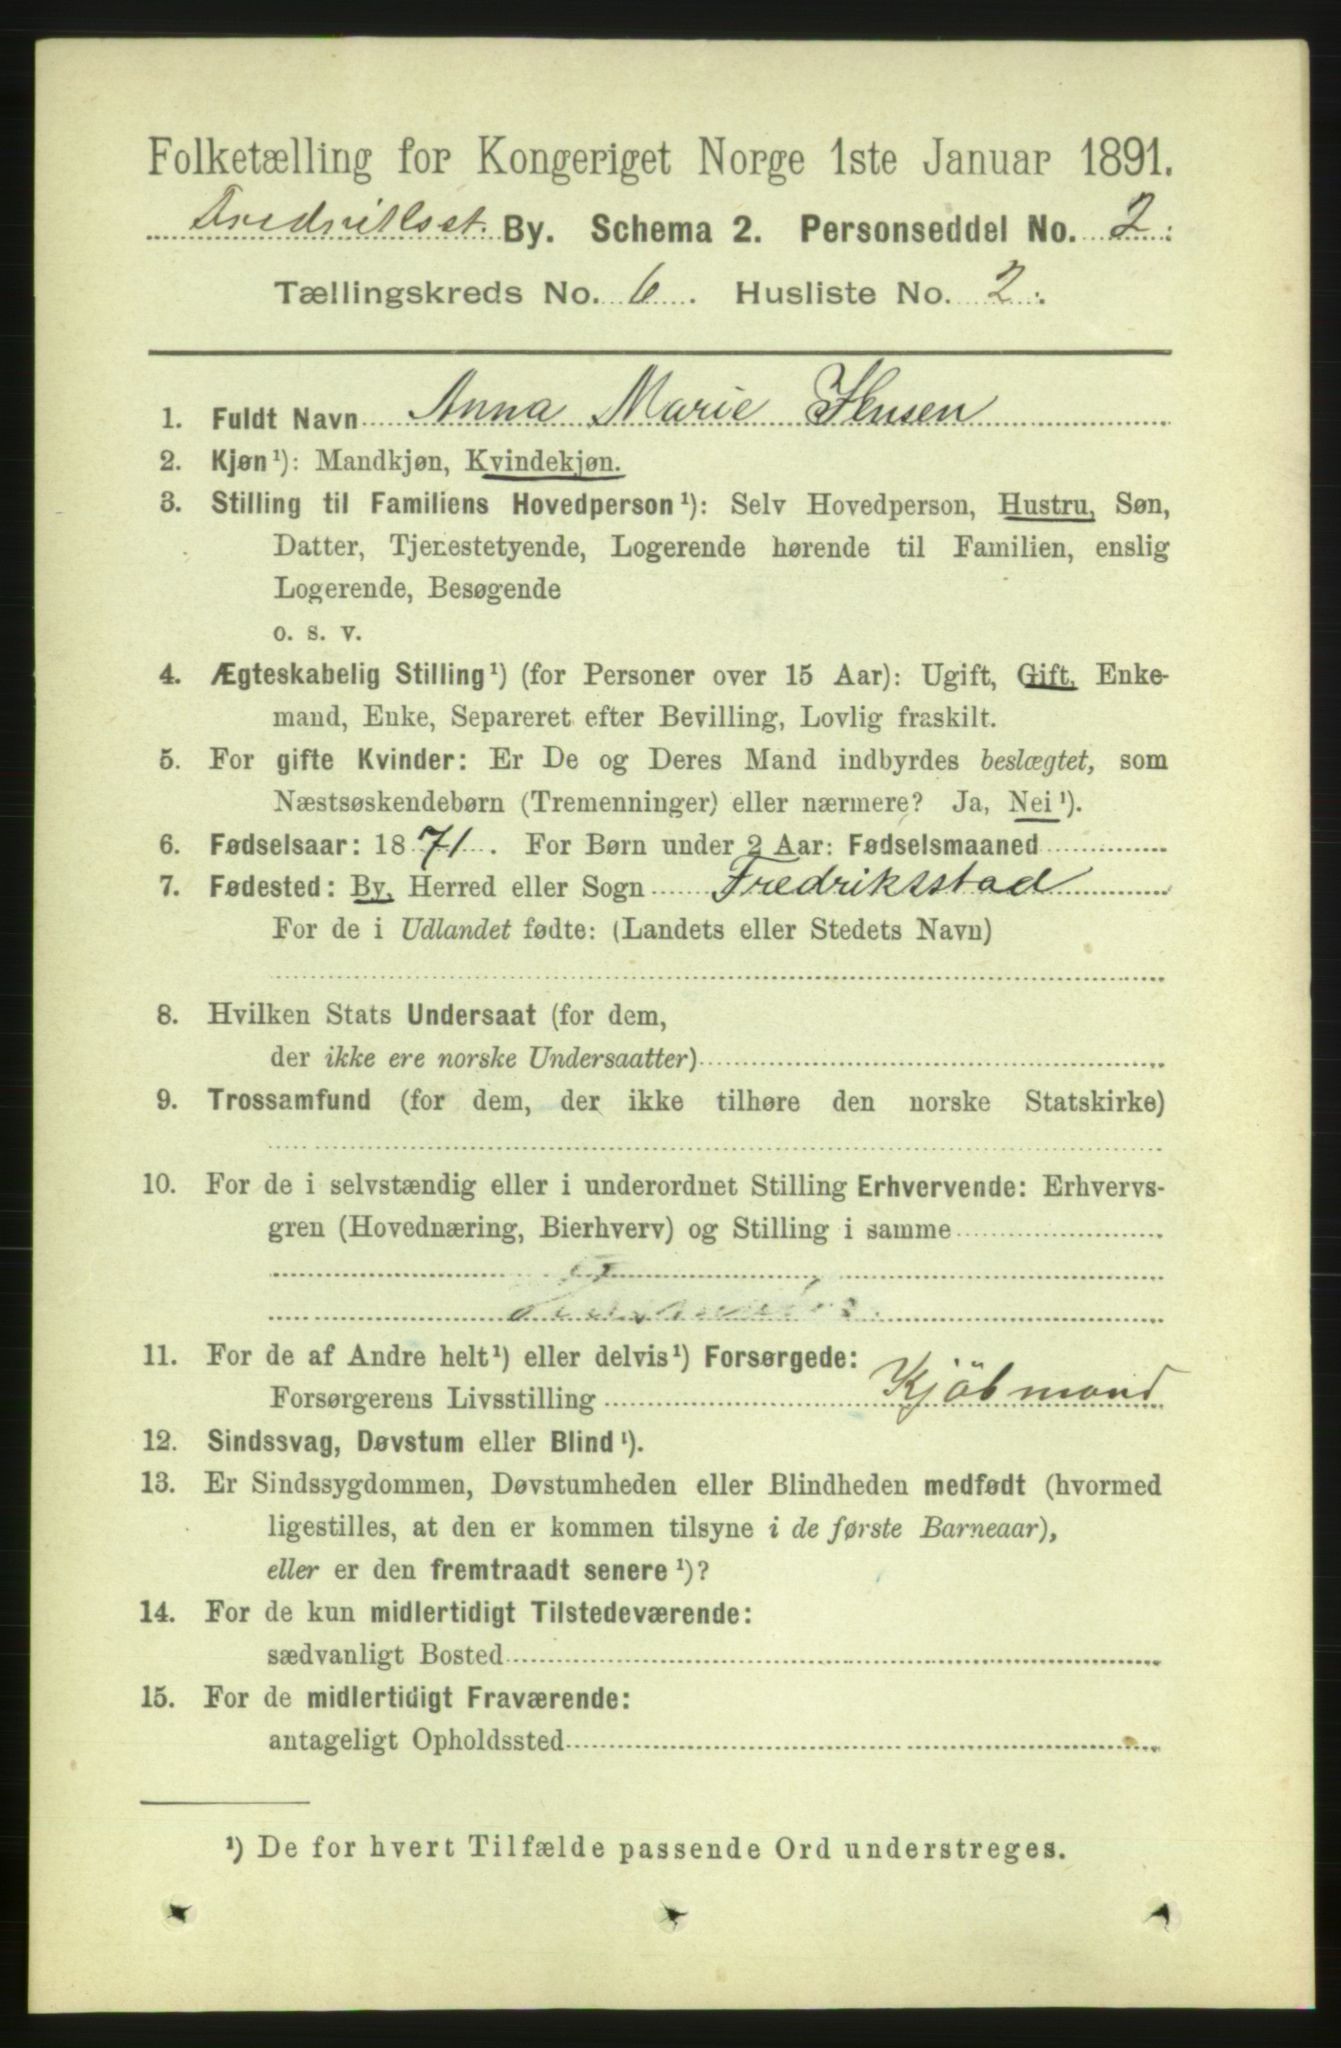 Folketælling for Kongeriget Norge 1ste Januar 1891.
Fredriksst. By. Schema 2. Personseddel No. 2.
Tællingskreds No. 6. Husliste No. 2.
1. Fuldt Navn Anna Marie
2. Kjøn¹): Mandkjøn, Kvindekjøn.
3. Stilling til Familiens Hovedperson¹): Selv Hovedperson, Hustru, Søn,
Datter, Tjenestetyende, Logerende hørende til Familien, enslig
Logerende, Besøgende
o. s. v.
4. Ægteskabelig Stilling¹) (for Personer over 15 Aar): Ugift, Gift, Enke-
mand, Enke, Separeret efter Bevilling, Lovlig fraskilt.
5. For gifte Kvinder: Er De og Deres Mand indbyrdes beslægtet, som
Næstsøskendebørn (Tremenninger) eller nærmere? Ja, Nei¹).
6. Fødselsaar: 1871. For Børn under 2 Aar: Fødselsmaaned
7. Fødested: By, Herred eller Sogn Fredriksstad
For de i Udlandet fødte: (Landets eller Stedets Navn)
8. Hvilken Stats Undersaat (for dem,
der ikke ere norske Undersaatter)
9. Trossamfund (for dem, der ikke tilhøre den norske Statskirke)
10. For de i selvstændig eller i underordnet Stilling Erhvervende: Erhvervs-
gren (Hovednæring, Bierhverv) og Stilling i samme
11. For de af Andre helt¹) eller delvis¹) Forsørgede:
Forsørgerens Livsstilling Kjöbmand
12. Sindssvag, Døvstum eller Blind¹).
13. Er Sindssygdommen, Døvstumheden eller Blindheden medfødt (hvormed
ligestilles, at den er kommen tilsyne i de første Barneaar),
eller er den fremtraadt senere¹)?
14. For de kun midlertidigt Tilstedeværende:
sædvanligt Bosted
15. For de midlertidigt Fraværende:
antageligt Opholdssted
¹) De for hvert Tilfælde passende Ord understreges.